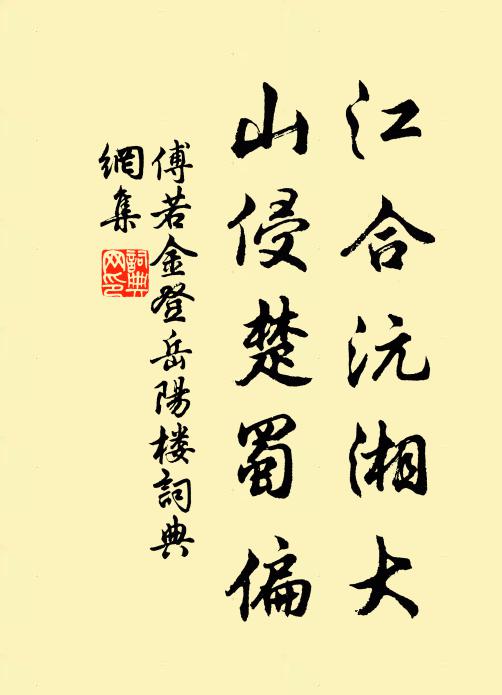 江合沅湘大
山侵楚蜀偏
傅若金登岳陽楼詞典
網集
詞典
网印